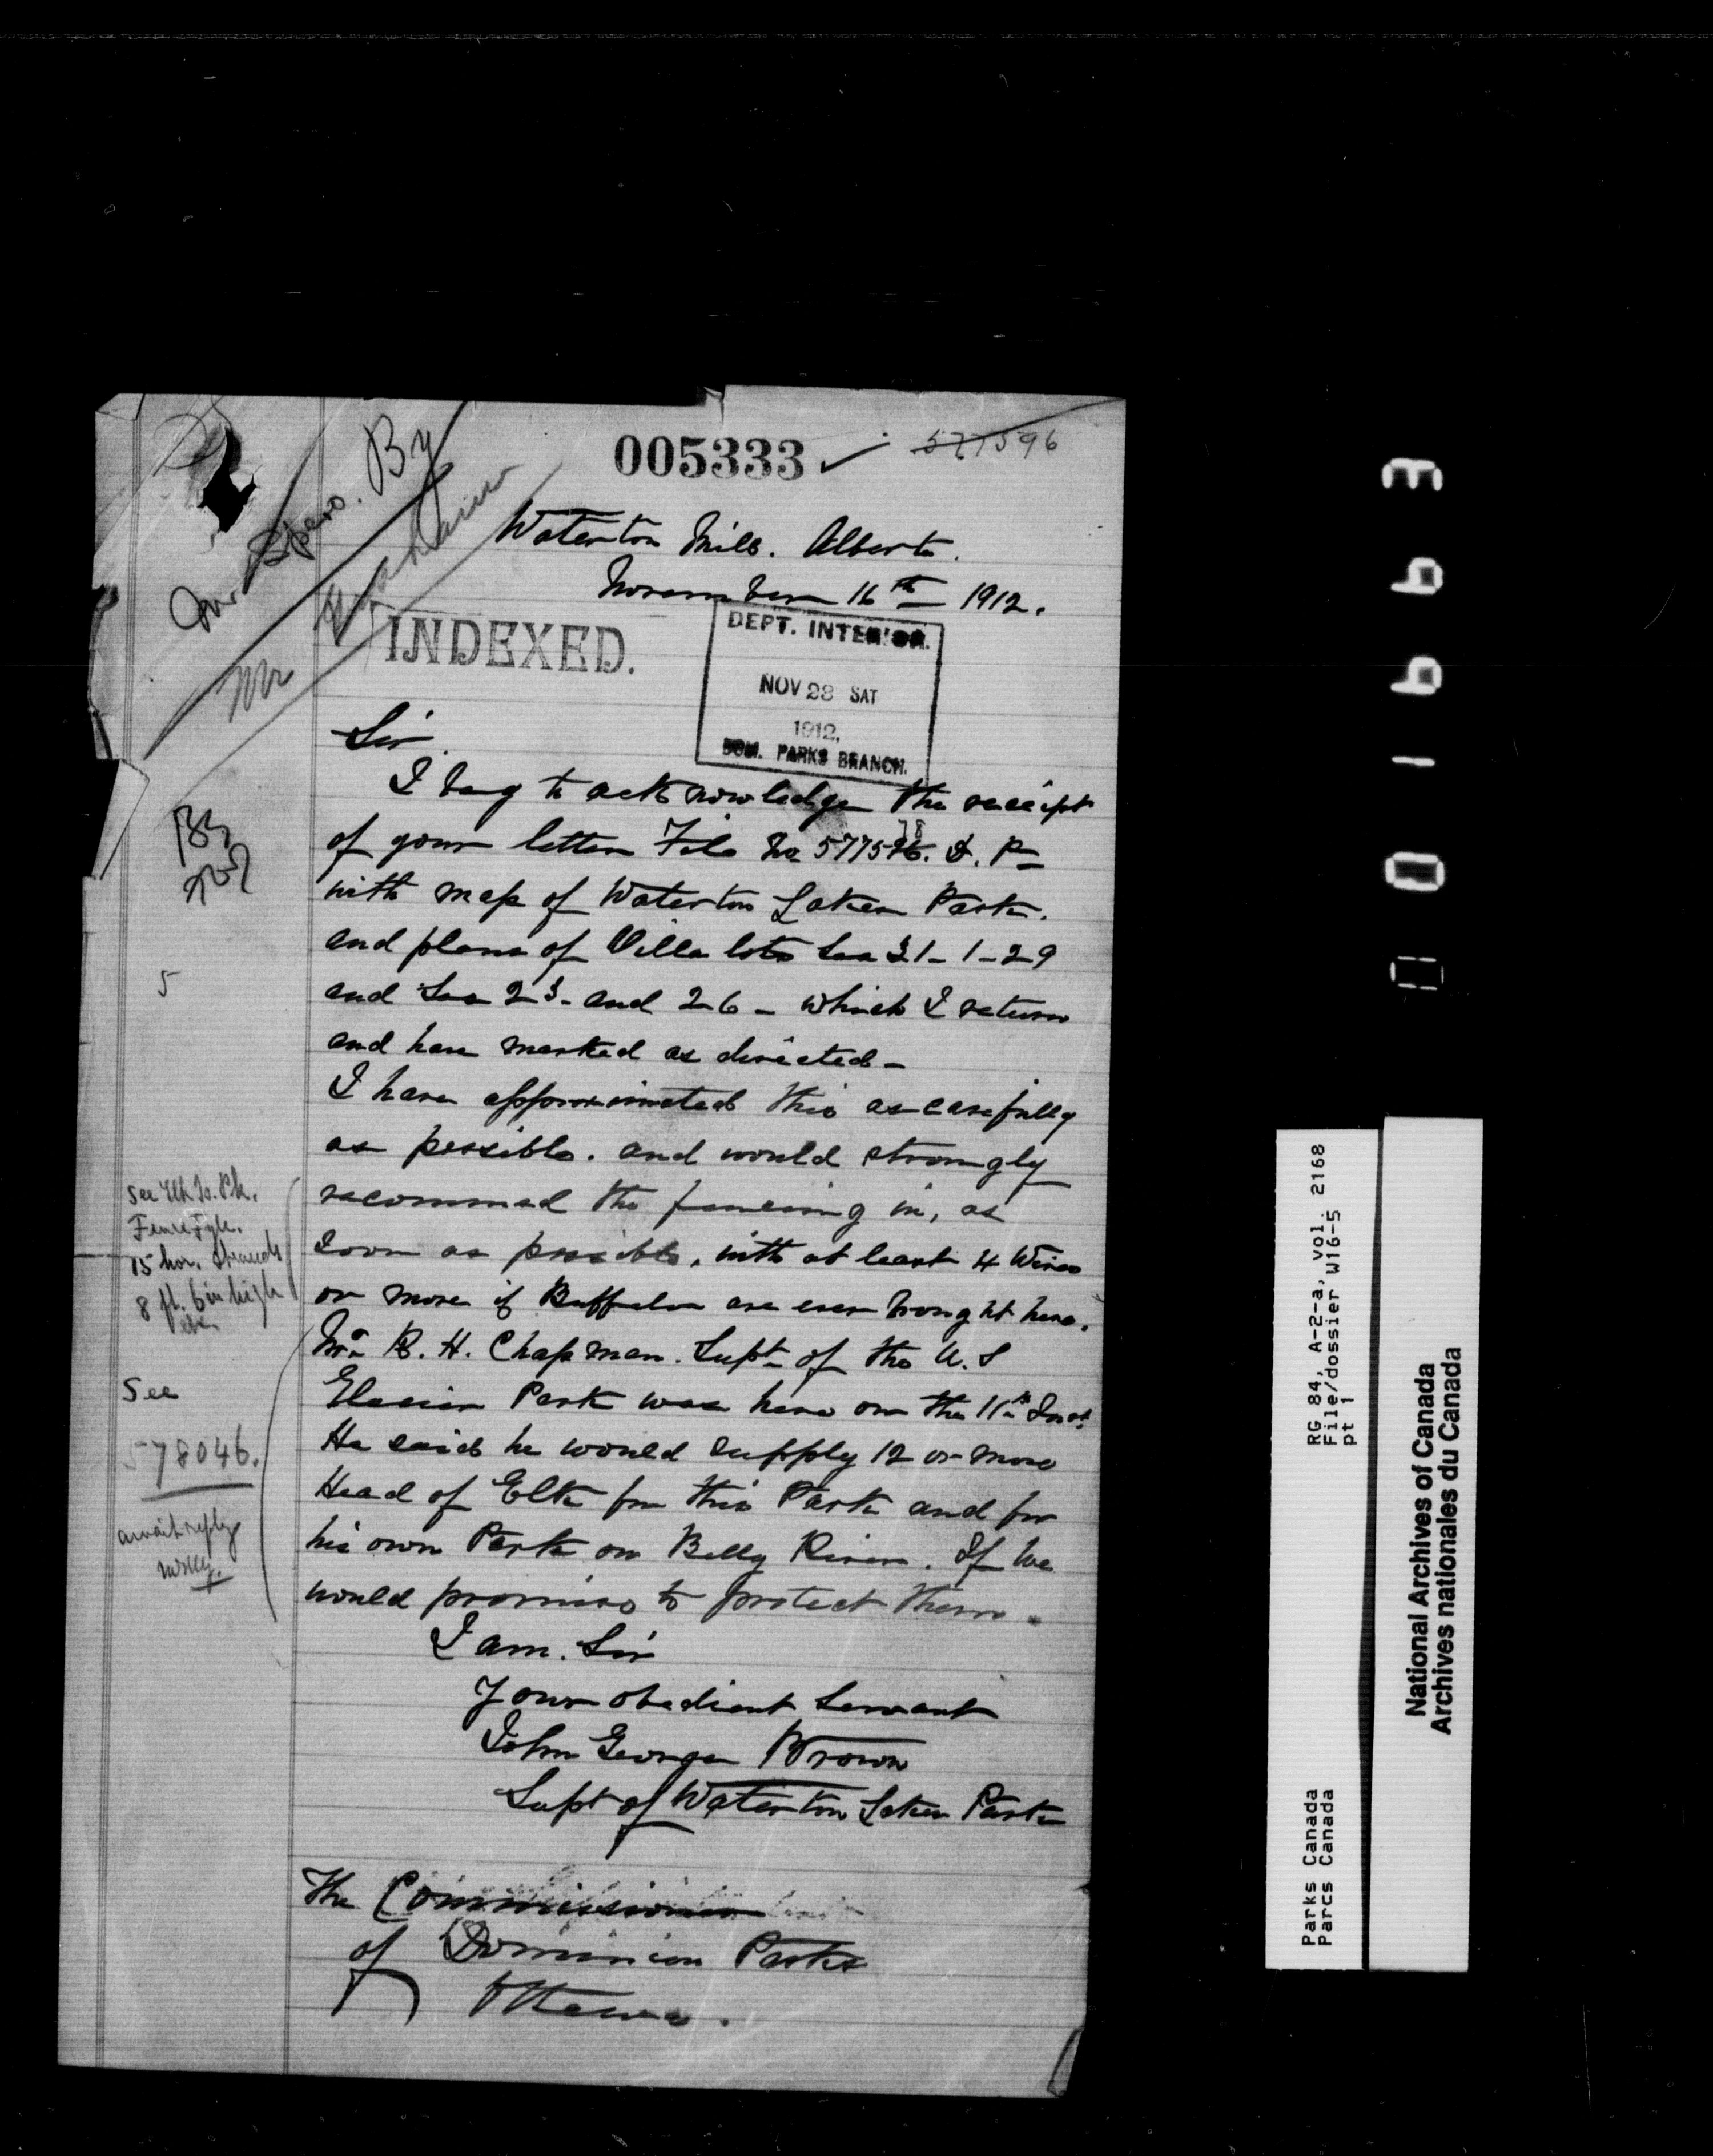 005333
577596
Mr Spero. By
Mr
Waterton Mills. Alberta.
November 16th 1912.
INDEXED.
DEPT. INTERIOR.
NOV 23 SAT
1912,
DOM. PARKS BRANCH.
Sir
I beg to acknowledge the receipt
of your letter File No 577596. D. P.
78
with map of Waterton Lakes Park.
and plans of Villa lots Sec 31-1-29
and Sec 23- and 26- which I return
and have marked as directed-
I have approximated this as carefully
as possible. and would strongly
recommed the fencing in, as
soon as possible, with at least 4 Wires
or more if Buffalo are ever brought here.
Mr. R. H. Chapman. Supt of the U.S
Glacier Park was here on the 11th Inst.
He said he would supply 12 or more
Head of Elk for this Park and for
his own Park on Belly River. If we
would promise to protect them.
I am. Sir
Your obedient Servant
John George Brown
Supt of Waterton Lakes Park
The Commissioner
of Dominion Parks
Ottawa.
5
See Elk Is. Pk.
Fence Fyle.
15 hor. strands
8 ft. 6 in high
See
578046.
await reply
National Archives of Canada
Archives nationales du Canada
RG 84, A-2-a, vol. 2168
File/dossier W16-5
pt 1
Parks Canada
Parcs Canada
001663